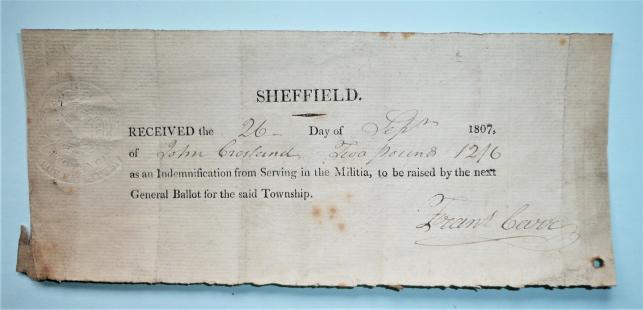 SHEFFIELD.
RECEIVED the 26 Day of Septr 1807,
of John Crosland Two pounds 12/6
as an Indemnification from Serving in the Militia, to be raised by the next
General Ballot for the said Township.
Frans Carr